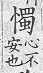 心不
安也